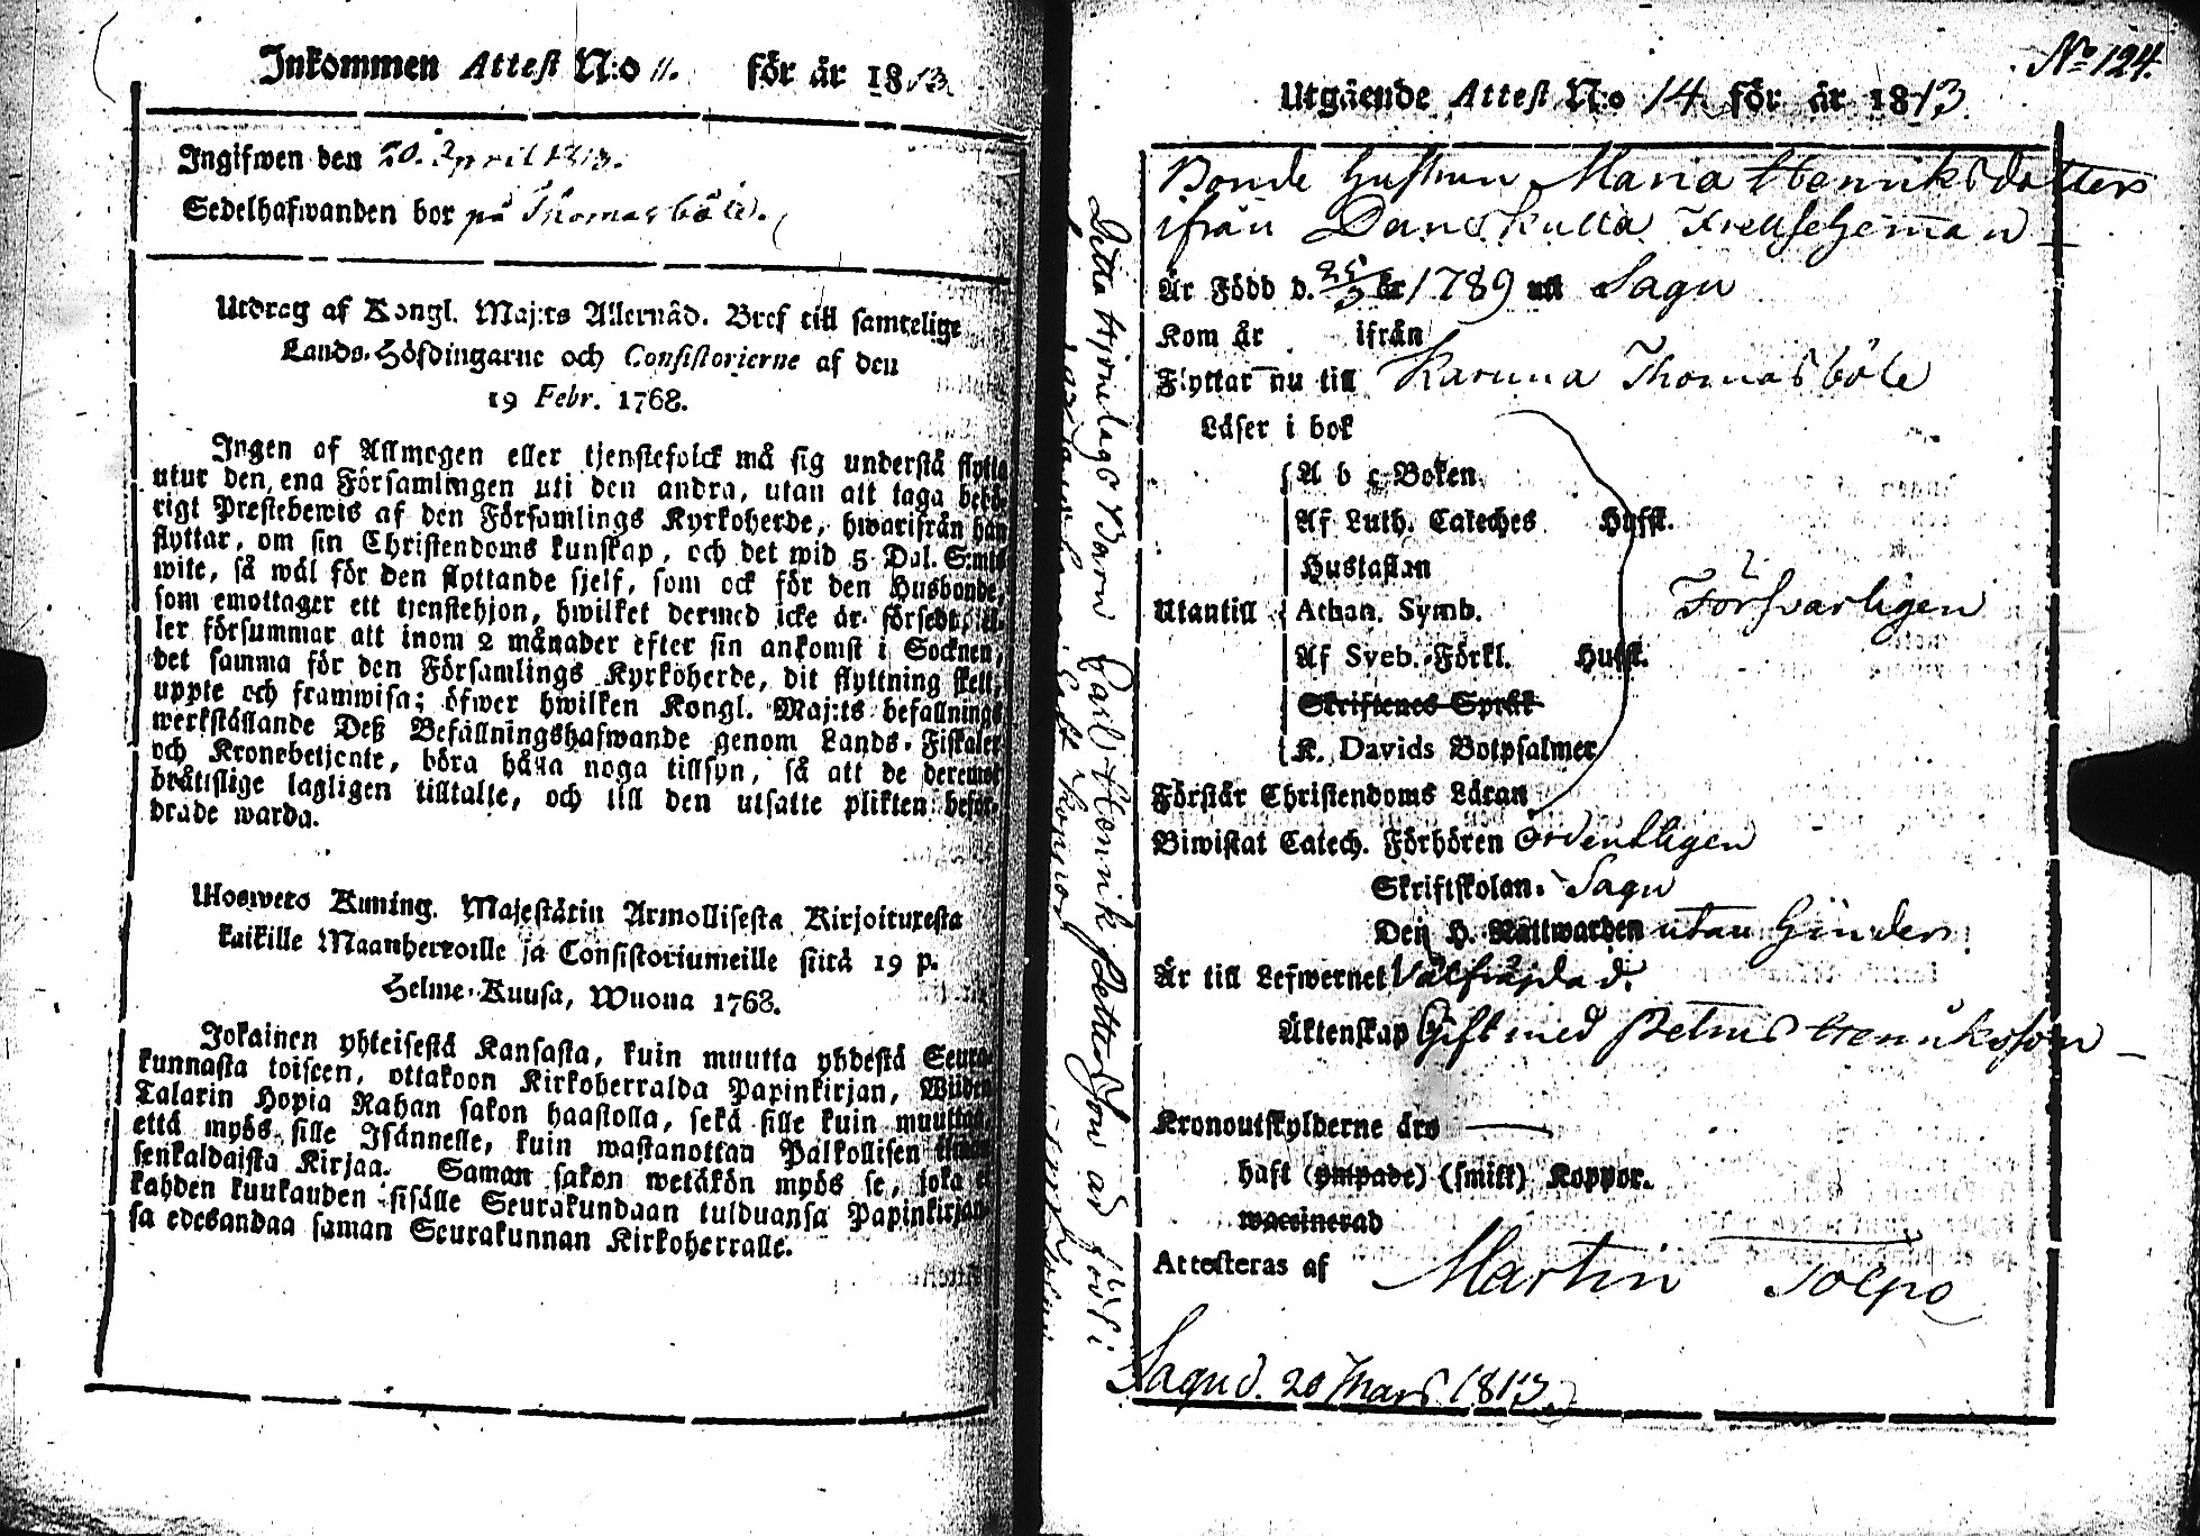 Inkommen Attest N:o 11. för år 1813.
Ingifwen den 20. April 1813.
Sedelhafwanden bor på Thomasböle.
Utdrag af Kongl. Maj:ts Allernåd. Bref till samtelige
Lands-Höfdingarne och Consistorierne af den
19 Febr. 1768.
Ingen af Allmogen eller tjenstefolck må sig understå flytta
utur den ena Församlingen uti den andra, utan att taga behö-
rigt Prestebewis af den Församlings Kyrkoherde, hwarifrån han
flyttar, om sin Christendoms kunskap, och det wid 5 Dal. S:mts
wite, så wäl för den flyttande sjelf, som ock för den Husbonde,
som emottager ett tjenstehjon, hwilket dermed icke är försedt, el-
ler försummar att inom 2 månader efter sin ankomst i Socknen,
det samma för den Församlings Kyrkoherde, dit flyttning skett,
uppte och framwisa; öfwer hwilken Kongl. Maj:ts befallnings
werkställande Deß Befallningshafwande genom Lands-Fiskaler
och Kronebetjente, böra hålla noga tillsyn, så att de deremot
bråttslige lagligen tilltalte, och till den utsatte plikten befor-
drade warda.
Uloswето Kuning. Majestätin Armollisesta Kirjoituxesta
kaikille Maanherroille ja Consistoriumeille siitä 19 p.
Helme-Kuusa, Wuona 1768.
Jokainen yhteisestä Kansasta, kuin muutta yhdestä Seura-
kunnasta toiseen, ottakoon Kirkoherralda Papinkirjan, Wiiden
Talarin Hopia Rahan sakon haastolla, sekä sille kuin muuttaa,
että myös sille Isännelle, kuin wastanottaa Palkollisen ilman
senkaldaista Kirjaa. Saman sakon wetäkön myös se, joka ei
kahden kuukauden sisälle Seurakundaan tulduansa Papinkirjan-
sa edesandaa saman Seurakunnan Kirkoherralle.
No 124.
Utgående Attest N:o 14. för år 1813.
Bonde Hustrun Maria Henriksdotter
ifrån Danskulla Frelsehemman
Är Född d. 25/3 år 1789 uti Sagu
Kom år ifrån
Flyttar nu till Karuna Thomasböle
Läser i bok
A b c-Boken
Af Luth. Cateches Hufst.
Hustaflan
Utantill Athan. Symb. Försvarligen
Af Sveb. Förkl. Hufst.
Skriftenes Språk
K. Davids Botpsalmer
Förstår Christendoms Läran
Biwistat Catech. Förhören Ordentligen
Skriftskolan Sagu
Den H. Nattwarden utan hinder.
Är till Lefwernet Välfräjdad.
Äktenskap Gift med Petter Henriksson
Kronoutskylderne äro
haft (ympade) (smitt) Koppor.
waccinerad
Attesteras af Martin Tolpo
Sagu d. 20 Mars 1813.
Detta Hjonelags Barn Carl Henrik Pettersson är född i